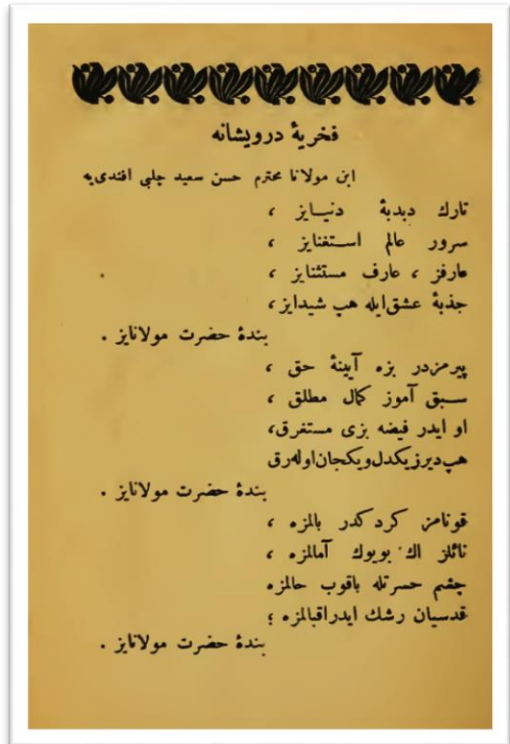 فخریهٔ درویشانه
ابن مولانا محترم حسن سعید چلبی افندی‌یه
تارك دبدبهٔ دنیایز ،
سرور عالم استغنایز ،
عارفز ، عارف مستثنایز ،
جذبهٔ عشق‌ایله هپ شیدایز ،
بندهٔ حضرت مولانایز .
پیرمزدر بزه آیینهٔ حق ،
سبق آموز کمال مطلق ،
او ایدر فیضه بزی مستغرق ،
هپ دیرز یکدل ویکجان اوله‌رق
بندهٔ حضرت مولانایز .
قونامز کرد کدر بالمزه ،
نائلز اك بویوك آمالمزه ،
چشم حسرتله باقوب حالمزه
قدسیان رشك ایدر اقبالمزه ؛
بندهٔ حضرت مولانایز .